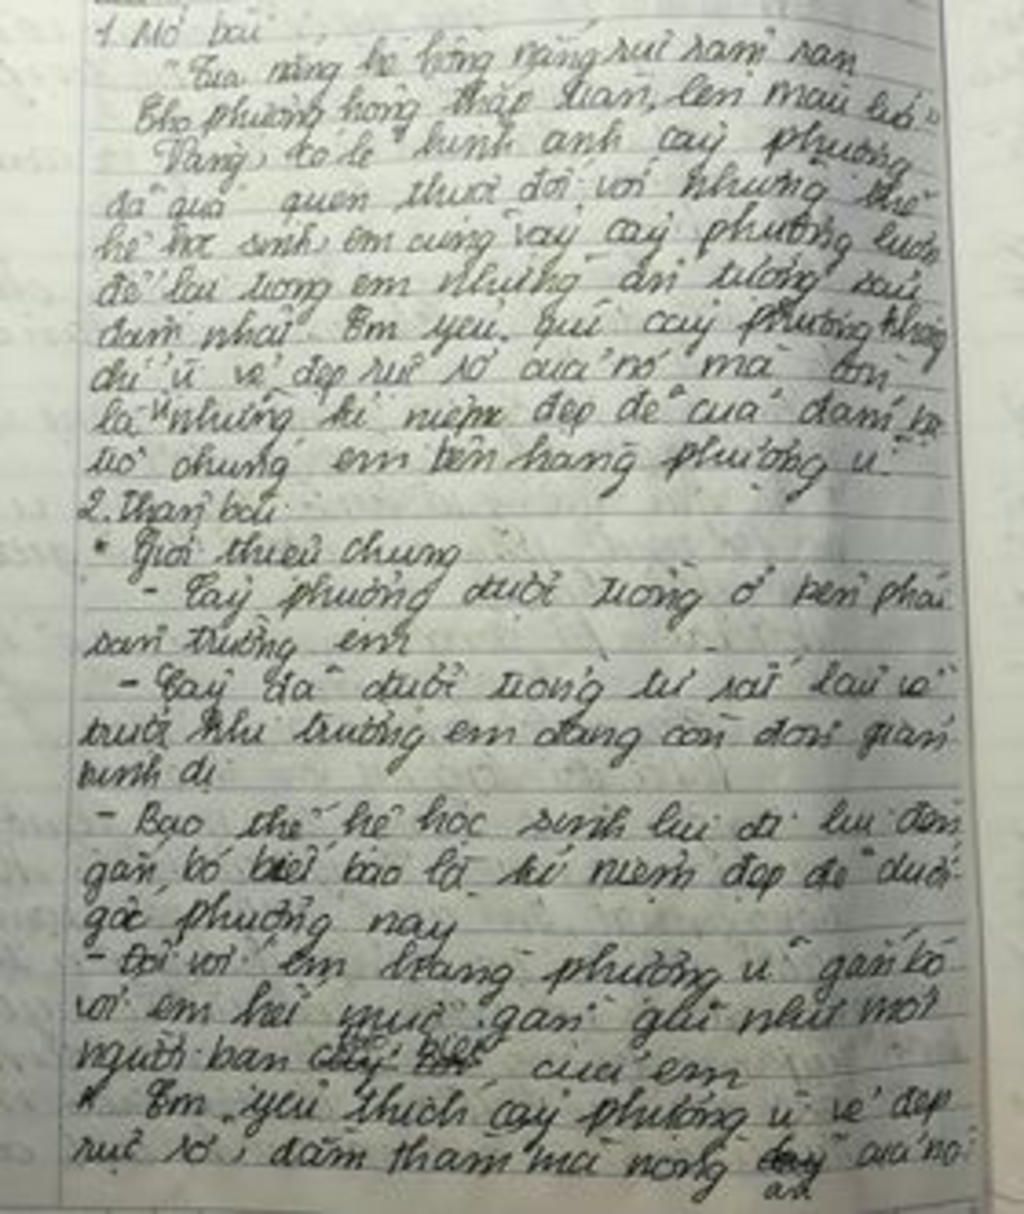 1. Mở bài
"Của nắng hè hồng nắng rưi ram ran
Cho phượng hồng thắp lên màu lửa"
Vâng, có lẽ hình ảnh cây phượng
đã quá quen thuộc đối với những thế
hệ học sinh, em cũng vậy cây phượng luôn
để lại trong em những ấn tượng sâu
đậm nhất. Em yêu quí cây phượng không
chỉ vì vẻ đẹp rực rỡ của nó mà còn
là những kỉ niệm đẹp đẽ của đám bạn
trò chúng em bên hàng phượng vĩ
2. Thân bài
* Giới thiệu chung
- Cây phượng được trồng ở bên phải
sân trường em
- Cây đã được trồng từ rất lâu về
trước khi trường em đang còn đơn giản
bình dị
- Bao thế hệ học sinh lui đi lui đến
gắn bó biết bao là kỉ niệm đẹp đẽ dưới
gốc phượng này
- Đối với em hàng phượng vĩ gắn bó
với em hết mực gần gũi như một
người bạn của em
* Em yêu thích cây phượng vì vẻ đẹp
rực rỡ, đằm thắm mà nồng của nó